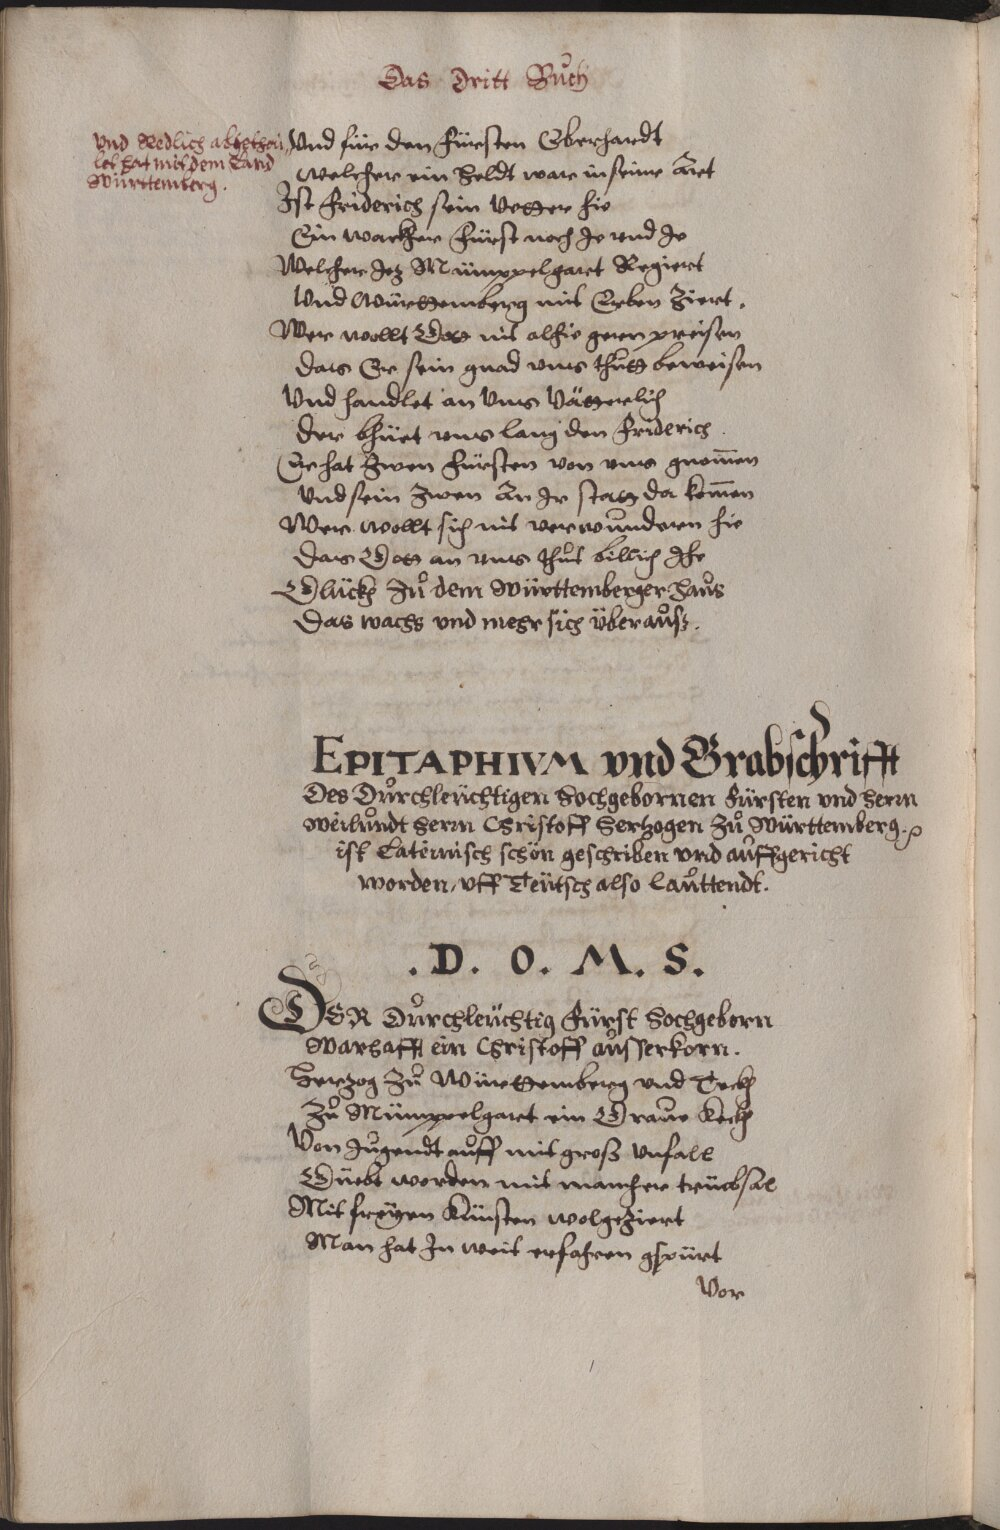 Das Dritt Bůch
Vnd Redlich abgethei
let hat mit dem Land
Württemberg.
Vnd für den Fürsten Eberhardt
welcher ein Heldt ware in seiner Art
Ist Friderich sein Vetter hie
Ein wackher Fürst noch Je vnd Je
Welcher Jez Mümppelgart Regiert
Vnd Württemberg mit Erben Ziert.
Wer wollt Gott nit alhie gern preisen
das Er sein gnad vns thůtt beweisen
Vnd handlet an Vns Vätterlich
der bhüet vns lang den Friderich.
Er hat Zwen Fürsten von vns gnom̄en
Vnd sein Zwen An Ir statt da kom̄en
Wer wollt sich nit verwůnderen hie
das Gott an vns thůt billich Ihe
Glückh Zů dem Württemberger Haůs
Das wachs vnd mehr sich überaůß.
EPITAPHIVM vnd Grabschrifft
Des Důrchleüchtigen Hochgebornen Fürsten vnd Herrn
weilůndt Herrn Christoff Hertzogen Zů Württemberg.
ist Lateinisch schön geschriben vnd aůffgericht
worden, vff Teütsch also Laůttendt.
.D. O. M. S.
DER Důrchleüchtig Fürst Hochgeborn
Warhafft ein Christoff aůsserkorn.
Hertzog Zů Württemberg vnd Teckh
Zů Mümppelgart ein Graůe Keckh
Von Jůgendt aůff mit groß Vnfall
Güebt worden mit mancher trüebsal
Mit freyen Künsten wolgeziert
Man hat In weit erfahren gspürt
Vor